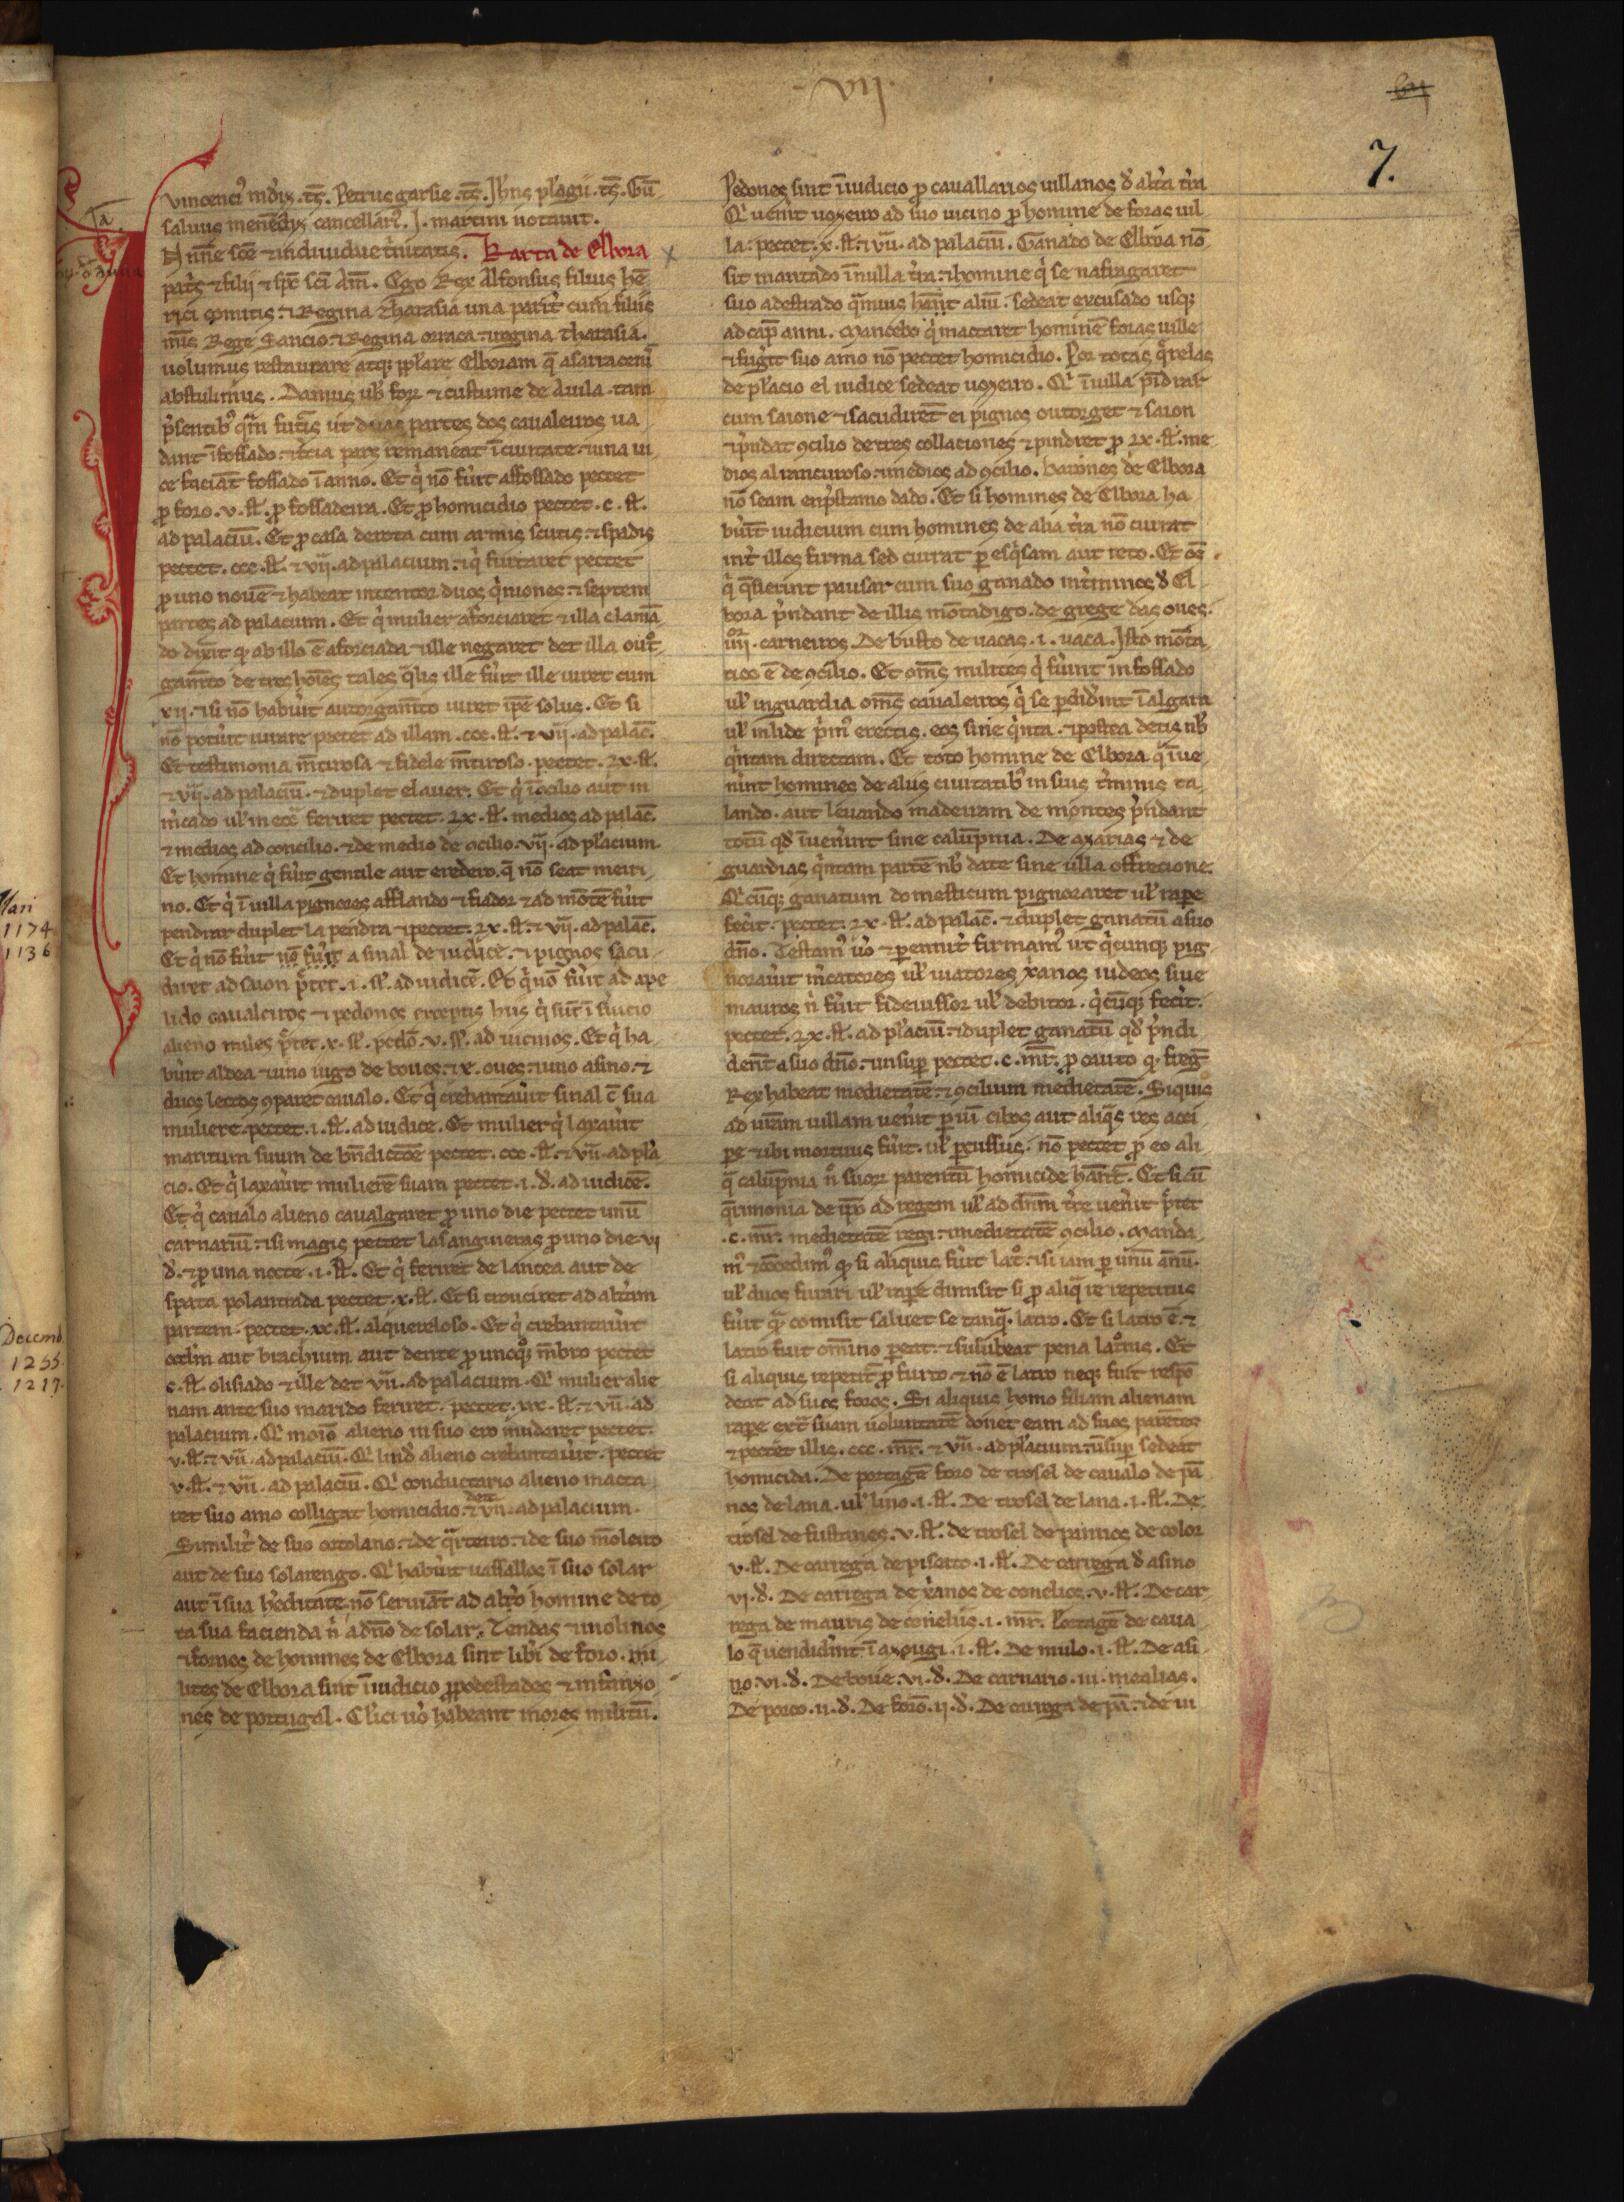 VII
7.
vincenci᷒ mdix . ts̄ . Petrus garsie . ts̄ . Joh̄ns pelagii . ts̄ . Gū
saluus menendiz cancellari᷒ . J . martini notauit .
N noīe sc̄e ⁊ indiuidue t̉nitatis . Karta de Elbora
pat̉s ⁊ filij ⁊ sp̄c sc̄i am̄ . Ego Rex Alfonsus filius hē
rici comitis . ⁊ Regina Tharasia una parit̉ cum filiis
m̄s Rege Sancio . ⁊ Regina orraca . ⁊ regina Tharasia .
uolumus restaurare atq; pp̄lare Elboram q̄ a sarracenis
abstulimus . Damus uob̄ foro ⁊ custume de Auila . tam
p̄sentib᷒ q̄m futuris ut duas partes dos caualeiros ua
dant ī fossado . ⁊ t̉cia pars remaneat ī ciuitate . ⁊ una ui
ce faciāt fossado ī anno . Et q̉ nō fủit a fossado pectet
p̱ foro . v . sł . p̱ fossadeira . Et p̱ homicidio pectet . c . sł .
ad palaciū . Et p̱ casa derota cum armis scutis . ⁊ spadis
pectet . ccc . sł . ⁊ vij . ad palacium . ⁊ q̉ furtaret pectet
p̱ uno nouē ⁊ habeat intentor duos q̉niones . ⁊ septem
partes ad palacium . Et q̉ mulier aforciaret ⁊ illa clamā
do dixit q̱ ab illo ē aforciada ⁊ ille negaret det illa outor
gam̄to de tres hōies tales q̄lis ille fủit ille iuret cum
xij . ⁊ si nō habủit autorgam̄to iuret ip̄e solus . Et si
nō potủit iurare pectet ad illam . ccc . sł . ⁊ vij . ad palac̄ .
Et testimonia m̄tirosa ⁊ fidele m̄tiroso . pectet . lx . sł .
⁊ vij . ad palaciū . ⁊ duplet el auer . Et q̉ ī ꝯcilio aut in
m̉cado ul̉ in ecc̄a feriret pectet . lx . sł . medios ad palac̄ .
⁊ medios ad concilio . ⁊ de medio de ꝯcilio . vij . ad palacium
Et homine q̉ fủit gentile aut eredero . q̄ nō seat meiri
no . Et q̉ ī uilla pignores afflando ⁊ fiador ⁊ ad mōte fủit
pendrar duplet la pendra ⁊ pectet . lx . sł . ⁊ vij . ad palac̄ .
Et q̉ nō fủit nō fủit a sinal de iudice . ⁊ pignos sacu
diret ad saion p̄tet . i . sł . ad iudicē . Et q̉ nō fủit ad ape
lido caualeiros ⁊ pedones exceptis his q̉ sūt ī seruicio
alieno miles p̄tet . x . sł . pedō . v . sł . ad uicinos . Et q̉ ha
bủit aldea ⁊ uno iugo de boues . ⁊ x . oues . ⁊ uno asino . ⁊
duos lectos ꝯparet caualo . Et q̉ crebantaủit sinal c̄ sua
muliere pectet . i . sł . ad iudice . Et mulier q̉ laxaủit
maritum suum de bn̄dictōe pectet . ccc . sł . ⁊ vij . ad pala
cio . Et q̉ laxaủit mulierē suam pectet . i . đ . ad iudicē .
Et q̉ caualo alieno caualgaret p̱ uno die pectet unū
carnariū . ⁊ si magis pectet las angueiras p̱ uno die . vi
đ . ⁊ p̱ una nocte . i . sł . Et q̉ feriret de lancea aut de
spata polantrada pectet . x . sł . Et si trocciret ad alt̉am
partem . pectet . xx . sł . al quereloso . Et q̉ crebantaủit
oculum aut brachium aut dente p̱ uno quoq; mēbro pectet
c . sł . olisiado ⁊ ille det vij . ad palacium . Q̉ mulier alie
nam ante suo marido feriret . pectet . xxx . sł . ⁊ vij . ad
palacium . Q̉ moiō alieno in suo ero mudaret pectet .
v . sł . ⁊ vij . ad palaciū . Q̉ linđ alieno crebantaủit . pectet
v . sł . ⁊ vij . ad palaciū . Q̉ conductario alieno macta
ret suo amo colligat homicidio . ⁊ det vij . ad palacium .
Similit̉ de suo ortolano . ⁊ de q̄rteiro . ⁊ de suo moleiro
aut de suo solarengo . Q̉ habủit uassallos ī suo solar
aut ī sua h̉editate nō seruiāt ad alt̉o homine de to
ta sua facienda n̉ ad dn̄o de solar . Tendas ⁊ molinos
⁊ fornos de homines de Elbora sint lib̉i de foro . Mi
lites de Elbora sint ī iudicio p̱ podestades ⁊ infanzo
nes de portugal . Cl̉ici ủo habeant mores militū .
Pedones sint ī iudicio p̱ cauallarios uillanos đ alt̉a t̉ra
Q̉ uen̉it uozeiro ad suo uicino p̱ homine de foras uil
la . pectet . x . sł . ⁊ vij . ad palaciū . Ganado de Elbora nō
sit montado ī nulla t̉ra . ⁊ homine q̉ se nafragaret
suo adestrado q̄muis habeat aliū . sedeat excusado usq;
ad cap̄ anni . Mancebo q̉ mactaret hominē foras uille
⁊ fug̉it suo amo nō pectet homicidio . Por totas q̄relas
de palacio el iudice sedeat uozeiro . Q̉ ī uilla pīdrar
cum saione ⁊ sacudirēt ei pignos outorget ⁊ saion
⁊ p̉ndat ꝯcilio de tres collaciones ⁊ pindret p̱ lx . sł . me
dios al rancuroso . ⁊ medios ad ꝯcilio . Barones de Elbora
nō seam en p̄stamo dado . Et si homines de Elbora ha
bủīt iudicium cum homines de alia t̉ra nō currat
int̉ illos firma sed currat p̱ esq̉sam aut reto . Et oēs
q̉ q̄sierint pausar cum suo ganado in t̉minos đ El
bora p̉ndant de illis mōtadigo . de grege das oues .
iiij . carneiros . De busto de uacas . i . uaca . Isto mōta
tico ē de ꝯcilio . Et om̄s milites q̉ fủint in fossado
ul̉ in guardia om̄s caualeiros q̉ se p̱did̉int ī algara
ul̉ in lide p̉m᷒ erectis . eos sine q̉nta . ⁊ postea detis nob̄
q̉ntam directam . Et toto homine de Elbora q̉ īue
n̉int homines de aliis ciuitatib᷒ in suis t̉minis ta
lando . aut leuando madeiram de montes p̉ndant
totū qđ īuen̉int sine calūpnia . De azarias ⁊ de
guardias q̉ntam partē nob̄ date sine ulla offrecione .
Q̉cūq; ganatum domesticum pignoraret ul̉ rape
fec̉it . pectet . lx . sł . ad palac̄ . ⁊ duplet ganatū a suo
dn̄o . Testam᷒ ủo ⁊ p̱ennit̉ firmam᷒ ut q̉cunq; pig
noraủit m̉catores ul̉ uiatores xānos iudeos siue
mauros n̉ fủit fideiussor ul̉ debitor . q̉cūq; fec̉it .
pectet . lx . sł . ad palaciū . ⁊ duplet ganatū qđ p̉ndi
dent a suo dn̄o . ⁊ insup̱ pectet . c . mr̄ . p̱ cauto q̱ fregit
Rex habeat medietatē . ⁊ ꝯcilium medietatē . Siquis
ad ur̄am uillam uen̉it p̱ uī cibos aut aliq̄s res acci
pe ⁊ ibi mortuus fủit . ul̉ p̱cussus . nō pectet p̱ eo ali
q̄ calūpnia n̉ suor parentū homicide habeant . Et si cū
q̄rimonia de ip̄o ad regem ul̉ ad dn̄m t̉re uen̉it p̄tet
. c . mr̄ . medietatē regi . ⁊ medietatē ꝯcilio . Manda
m᷒ ⁊ ꝯcedim᷒ q̱ si aliquis fủit latro . ⁊ si iam p̱ unū annū
ul̉ duos furari ul̉ rape dimisit si p̱ aliq̄ re repetitus
fủit q̄ comisit saluet se tanq̄ . latro . Et si latro ē . ⁊
latro fuit omīno pereat . ⁊ subbeat pena latronis . Et
si aliquis repetit̉ p̱ furto . ⁊ nō ē latro neq; fuit respō
deat ad suos foros . Si aliquis homo filiam alienam
rape ext̄ suam uoluntatē donet eam ad suos parētes
⁊ pectet illis . ccc . mr̄ . ⁊ vij . ad palacium . ⁊ īsup̱ sedeat
homicida . De portagē foro de trosel de caualo de pā
nos de lana . ul̉ lino . i . sł . De trosel de lana . i . sł . De
trosel de fustanes . v . sł . de trosel de pannos de color
v . sł . De carrega de piscato . i . sł . De carrega đ asino
vi . đ . De carrega de xānos de conelios . v . sł . De car
rega de mauris de conelius . i . mr̄ . Portagē de caua
lo q̄ uendid̉int ī azougi . i . sł . De mulo . i . sł . De asi
no . vi . đ . De boue . vi . đ . De carnario . iii . mealias .
De porco . ii . đ . De forō . ij . đ . De carrega de pā . ⁊ de ui
Mari
1174
1136
Decemb
1255.
1217.